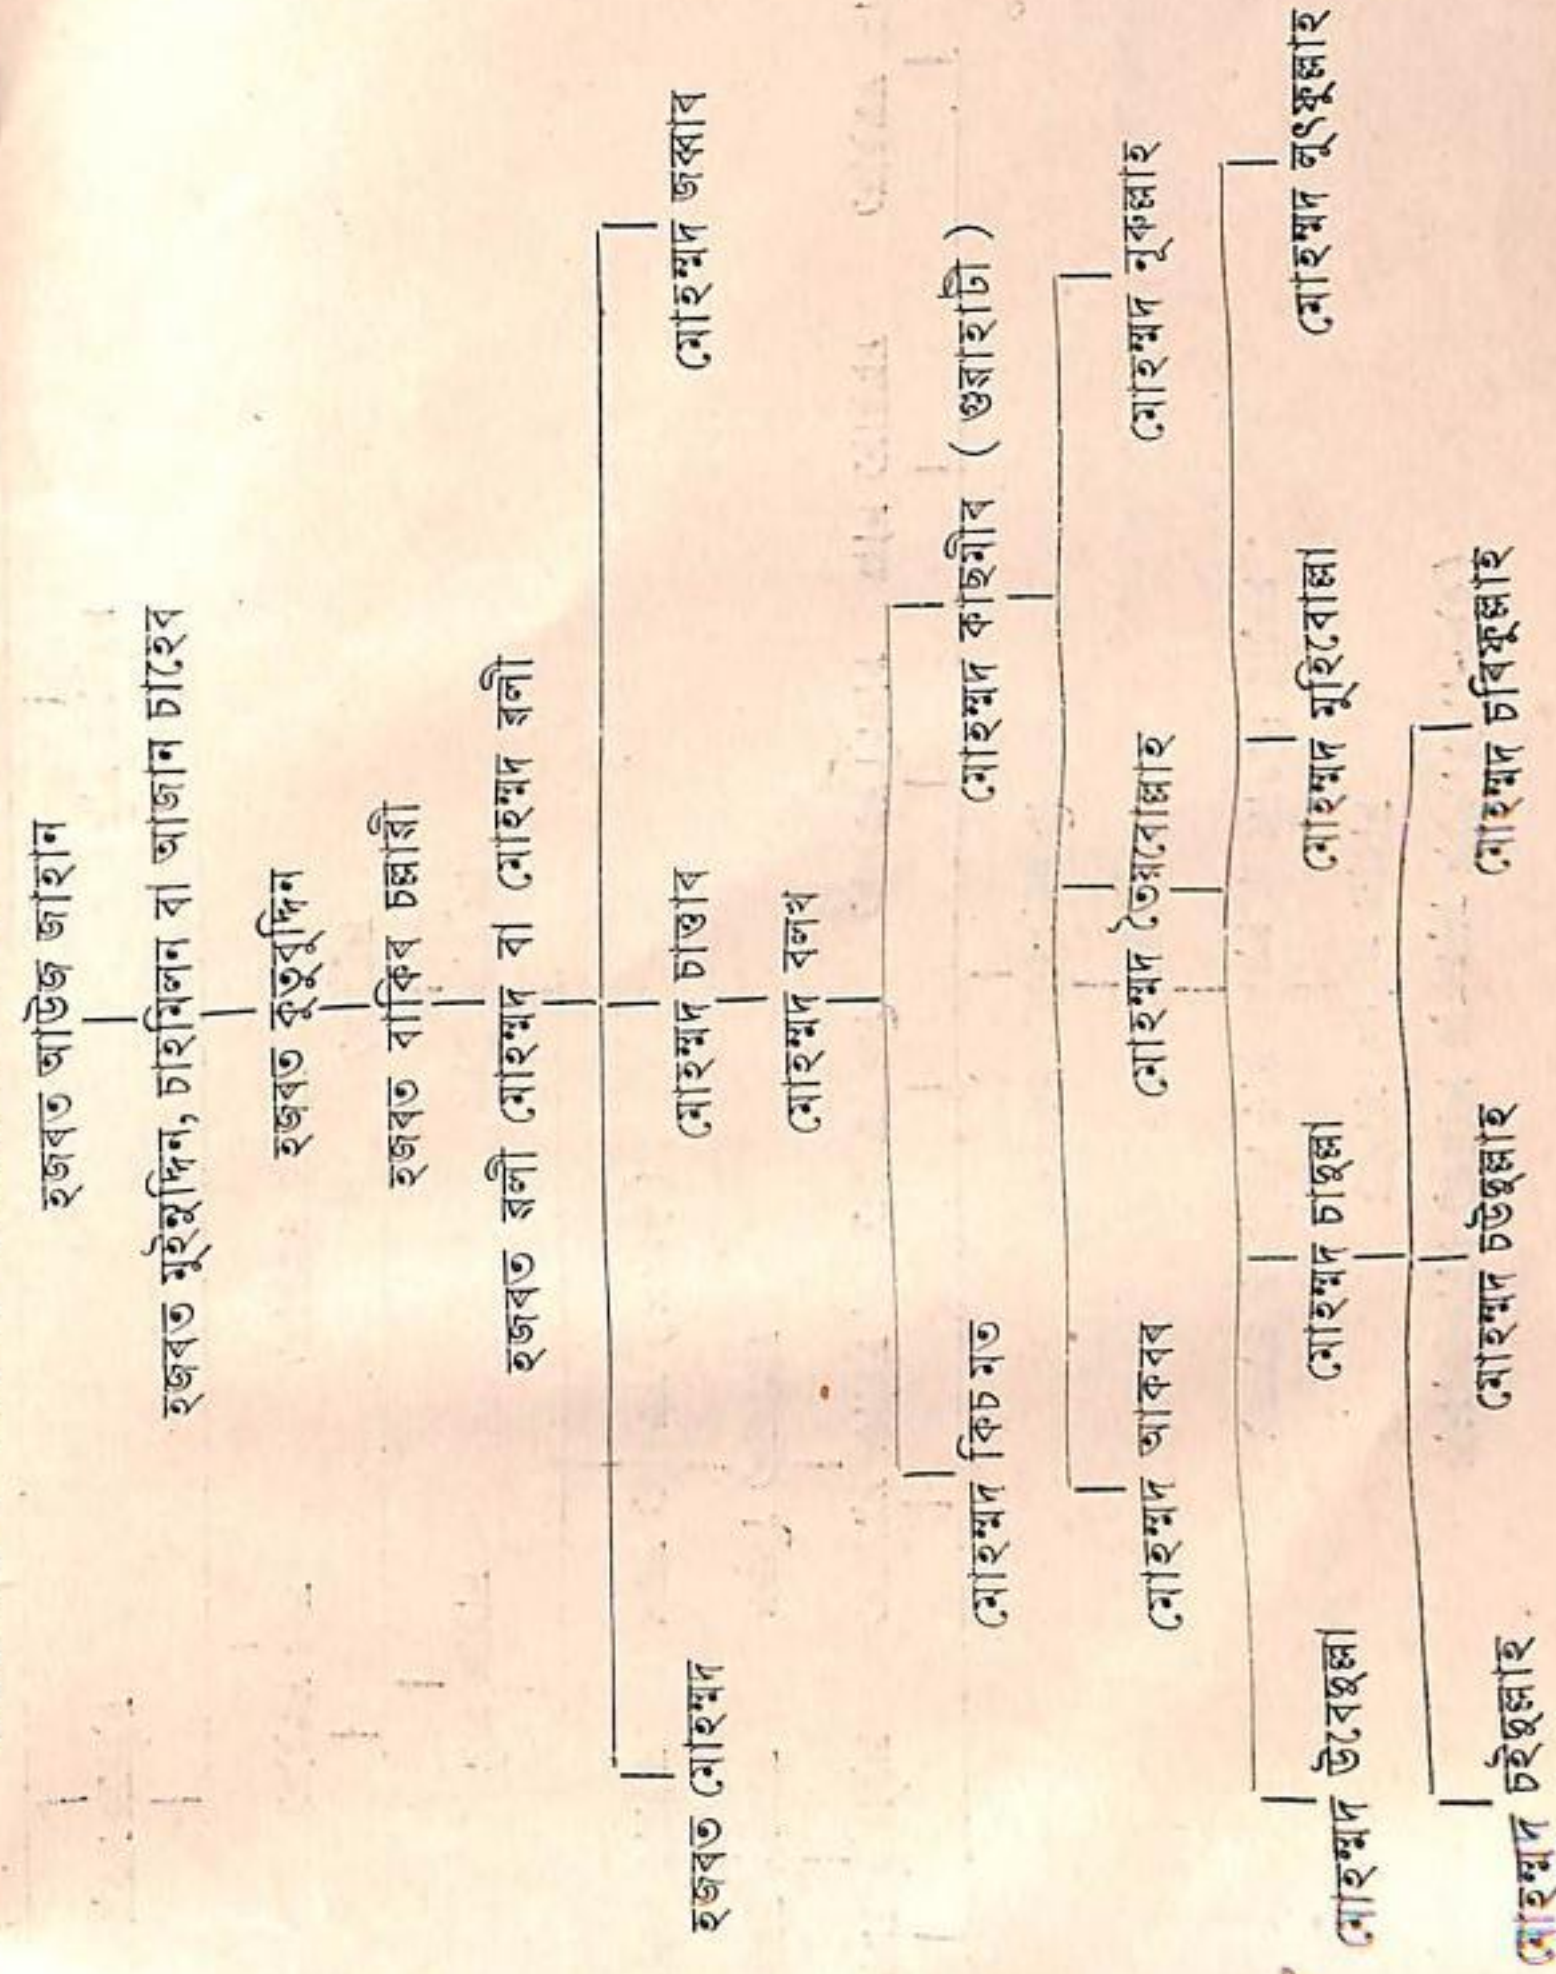 হজৰত আউজ জাহান
হজৰত মুইনুদ্দিন, চাহমিলন বা আজান চাহেব
হজৰত কুতুবুদ্দিন
হজৰত বাকিৰ চল্লামী
হজৰত ৱলী মোহম্মদ বা মোহম্মদ ৱলী
হজৰত মোহম্মদ
মোহম্মদ চাত্তাৰ
মোহম্মদ জব্বাৰ
মোহম্মদ কলম
মোহম্মদ কিচমত
মোহম্মদ কাছমীৰ ( গুৱাহাটী )
মোহম্মদ আকবৰ
মোহম্মদ তৈয়বোল্লাহ
মোহম্মদ নুৰুল্লাহ
মোহম্মদ উবেদুল্লা
মোহম্মদ চাদুল্লা
মোহম্মদ মুহিবোল্লা
মোহম্মদ লুৎফুল্লাহ
মোহম্মদ চইদুল্লাহ
মোহম্মদ চউদুল্লাহ
মোহম্মদ চৰিফুল্লাহ